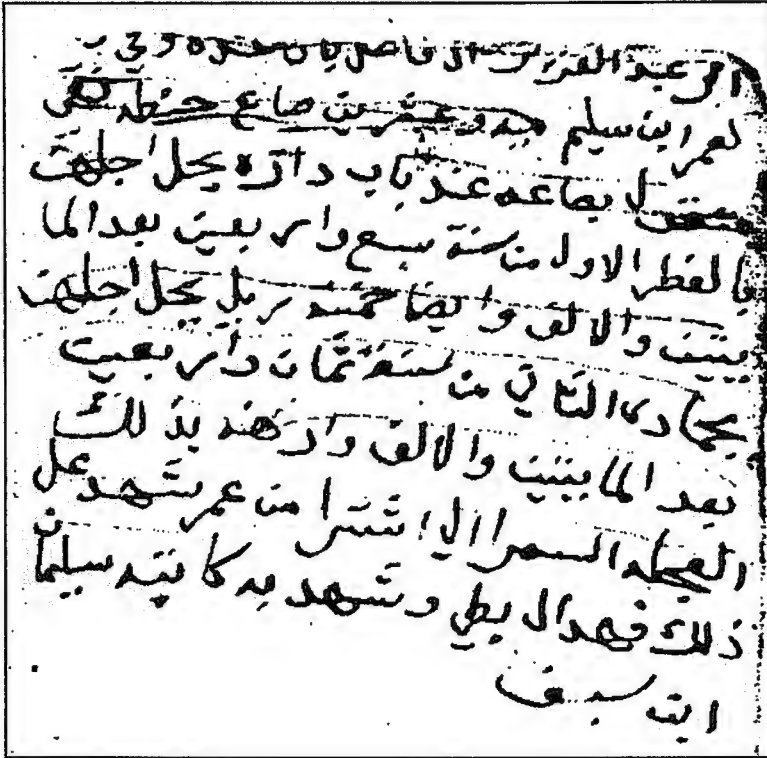 اقر عبد العزيز ال فاضل بان عنده وفي
لعمر ابن سليم ميه وعشرين صاع حنطه
بصاعه عند باب داره يحل اجلهن
بالفطر الاول من سنة سبع واربعين بعد الما
يتين والالف وايضا خمسة ريل يحل اجلهن
بجمادى الثاني من سنة ثمان واربعين
بعد المايتين والالف وارهنه بذلك
السمرا الي اشترا من عمر شهد على
ذلك فهد ال بطي وشهد به كاتبه سليمان
ابن سيف